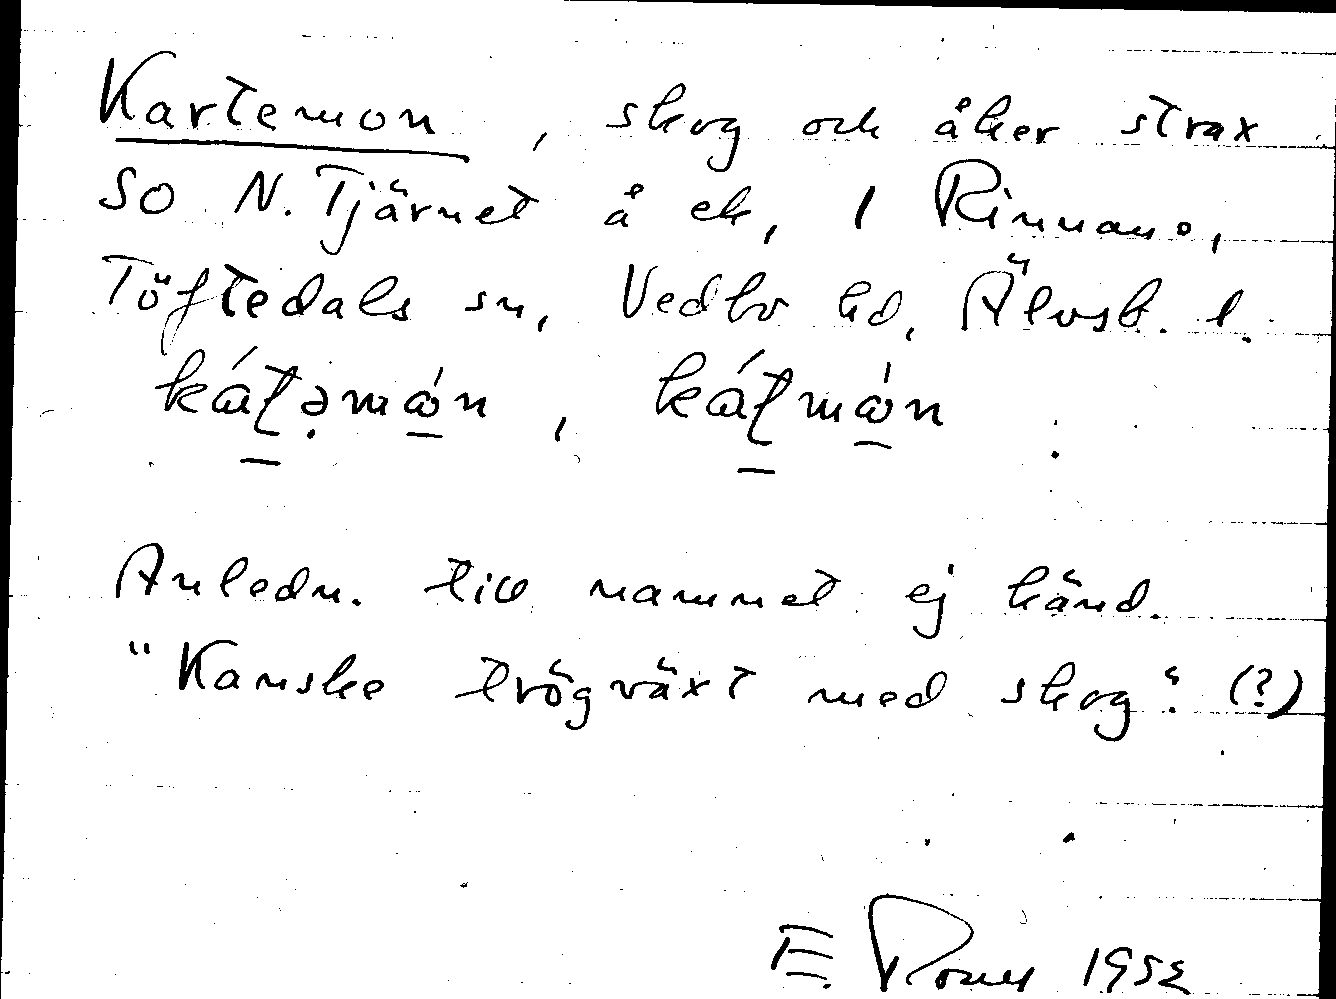 Kartemon, skog och åker strax
SO N. Tjärnet å ek, 1 Rinnano,
Töftedals sn, Vedbo hd, Älvsb. l.
Anledn. till namnet ej känd.
"Kanske trögväxt med skog". (?)
E. 1952